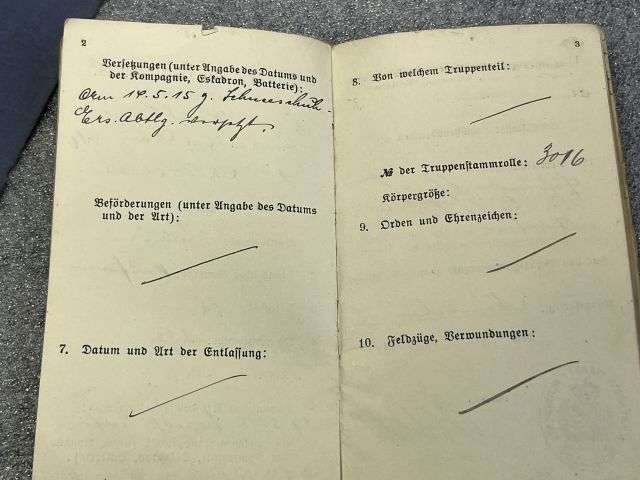 2
Versetzungen (unter Angabe des Datums und
der Kompagnie, Eskadron, Batterie):
Am 14.5.15 z. Schneeschuh-
Ers. Abtlg. versetzt.
Beförderungen (unter Angabe des Datums
und der Art):
7. Datum und Art der Entlassung:
3
8. Von welchem Truppenteil:
№ der Truppenstammrolle: 3016
Körpergröße:
9. Orden und Ehrenzeichen:
10. Feldzüge, Verwundungen: